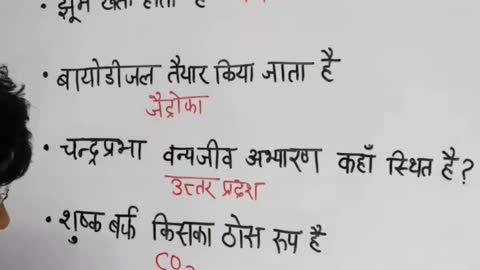 • झूम खेती होती है
• बायोडीजल तैयार किया जाता है
जैट्रोफा
• चन्द्रप्रभा वन्यजीव अभ्यारण कहाँ स्थित है ?
उत्तर प्रदेश
• शुष्क बर्फ किसका ठोस रूप है
CO₂